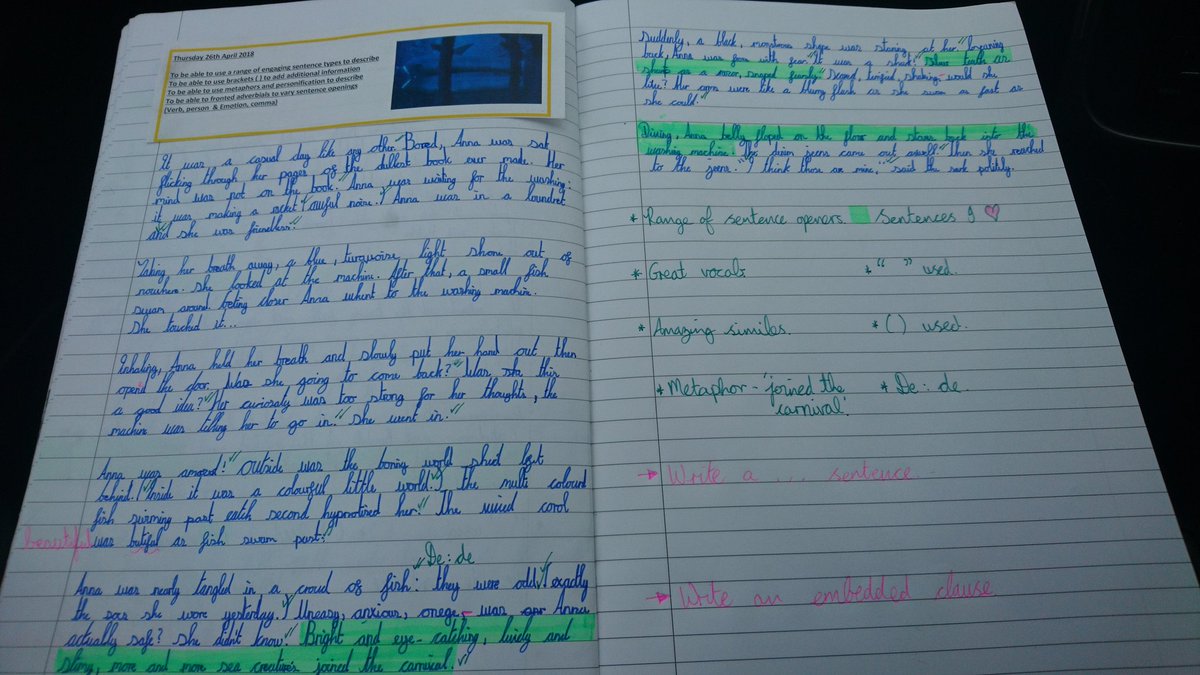 Thursday 26th April 2018
To be able to use a range of engaging sentence types to describe
To be able to use brackets ( ) to add additional information
To be able to use metaphors and personification to describe
To be able to fronted adverbials to vary sentence openings
(Verb, person & Emotion, comma)
It was a casual day like any other. Bored, Anna was sat
flicking through her pages of the dullest book ever made. Her
mind was not on the book. Anna was waiting for the washing.
it was making a racket (awful noise.) Anna was in a
and she was friendless!
Taking her breath away, a blue, turquoise light shone out of
nowhere. She looked at the machine. After that, a small fish
swam around. closer Anna whent to the washing machine.
She touched it...
Inhaling, Anna held her breath and slowly put her hand out then
opend the door. Was she going to come back? Was she this
a good idea? Her was too strong for her thoughts, the
machine was telling her to go in. She went in.
Anna was Outside was the boring world left
behind. (Inside it was a colourful little world.) The multi colourd
fish past eatch second hypnotised her. The corol
beautiful was butifal as fish swam past.
De: de
Anna was nearly tangled in a croud of fish: they were odd. (exactly
the she wore yesterday.) Uneasy, anxious, - was Anna
actually safe? She didn't know. Bright and eye-catching, lively and
slimy, more and more sea creatures joined the carnival.
Suddenly, a black, shape was staring at her.
back, Anna was with fear. It was a shark! teeth as
as a razor, snaped Scared, terrified, shaking would she
Her arms were like a flash as she swam as fast as
she could.
Diving, Anna belly floped on the floor and back into the
washing machine. The jeens came out Then she reached
to the jeens. "I think those are mine," said the politely.
* Range of sentence openers. Sentences I ♡
* Great vocab * “ ” used.
* Amazing similes. * ( ) used.
* Metaphor - 'joined the * De: de
carnival'.
→ Write a ... sentence
→ Write an embedded clause